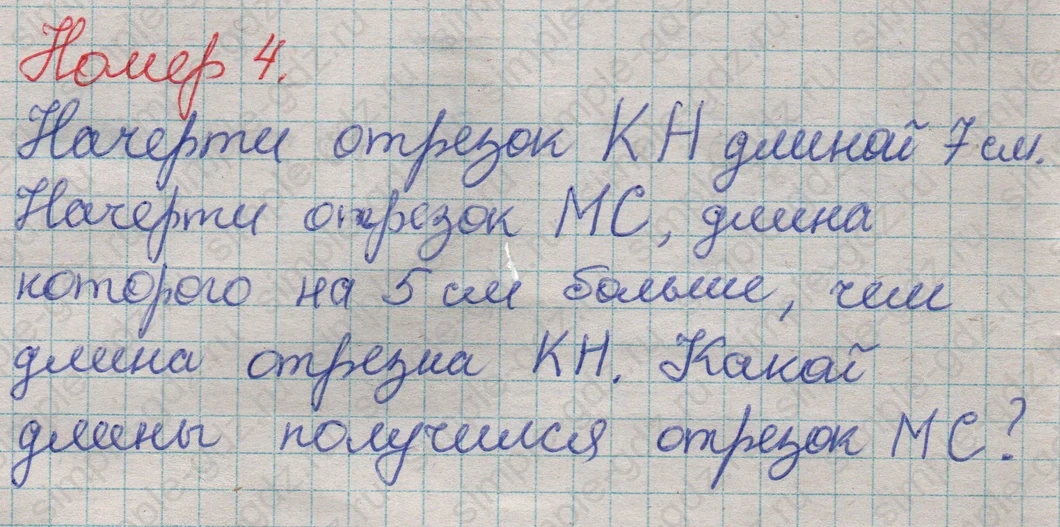 Номер 4.
Начерти отрезок КН длиной 7 см.
Начерти отрезок МС, длина
которого на 5 см больше, чем
длина отрезка КН. Какой
длины получился отрезок МС?